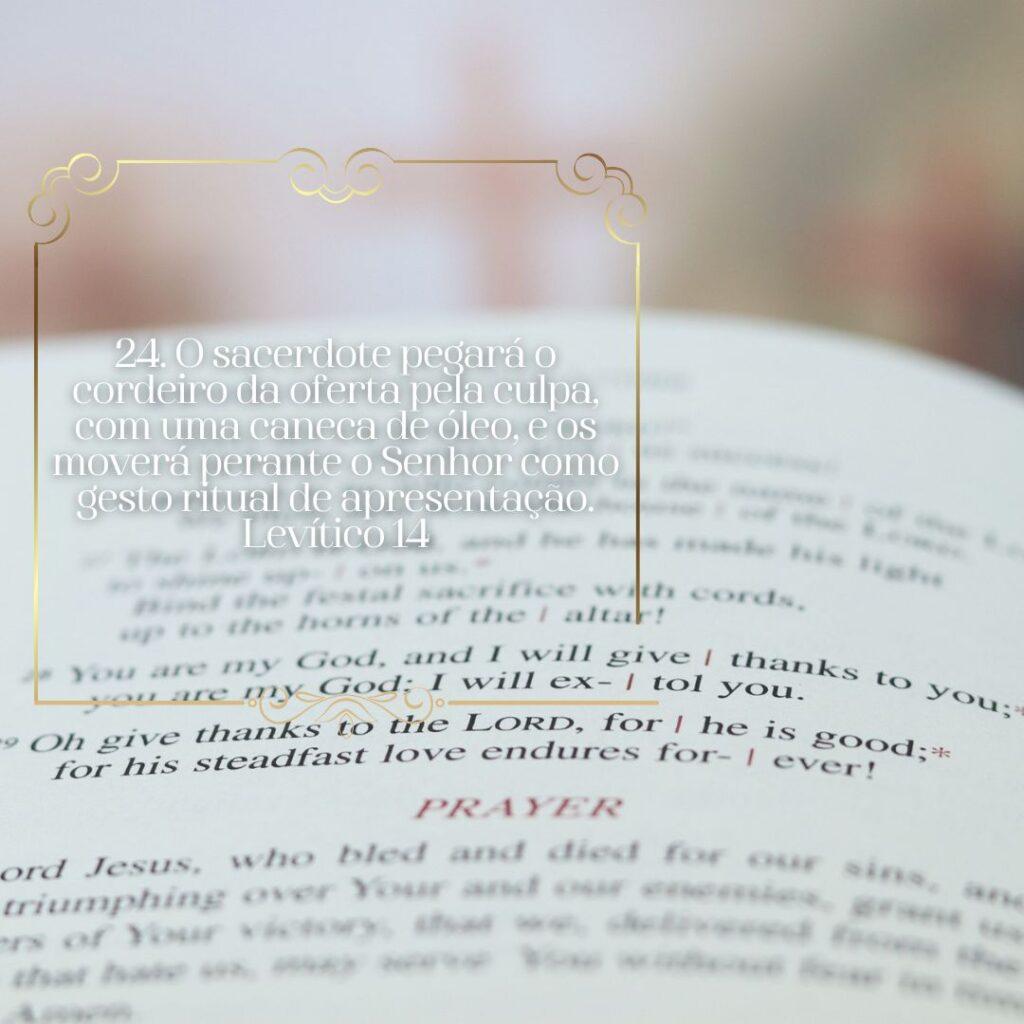 24. O sacerdote pegará o
cordeiro da oferta pela culpa,
com uma caneca de óleo, e os
moverá perante o Senhor como
gesto ritual de apresentação.
Levítico 14
and he has made his light
to shine up- | on us.*
Bind the festal sacrifice with cords,
up to the horns of the | altar!
28 You are my God, and I will give | thanks to you;*
you are my God; I will ex- | tol you.
29 Oh give thanks to the LORD, for | he is good;*
for his steadfast love endures for- | ever!
PRAYER
ord Jesus, who bled and died for our sins, and
triumphing over Your and our enemies, grant us
ers of Your victory, that we, delivered from the
that hate us, may serve You without fear in
Amen.